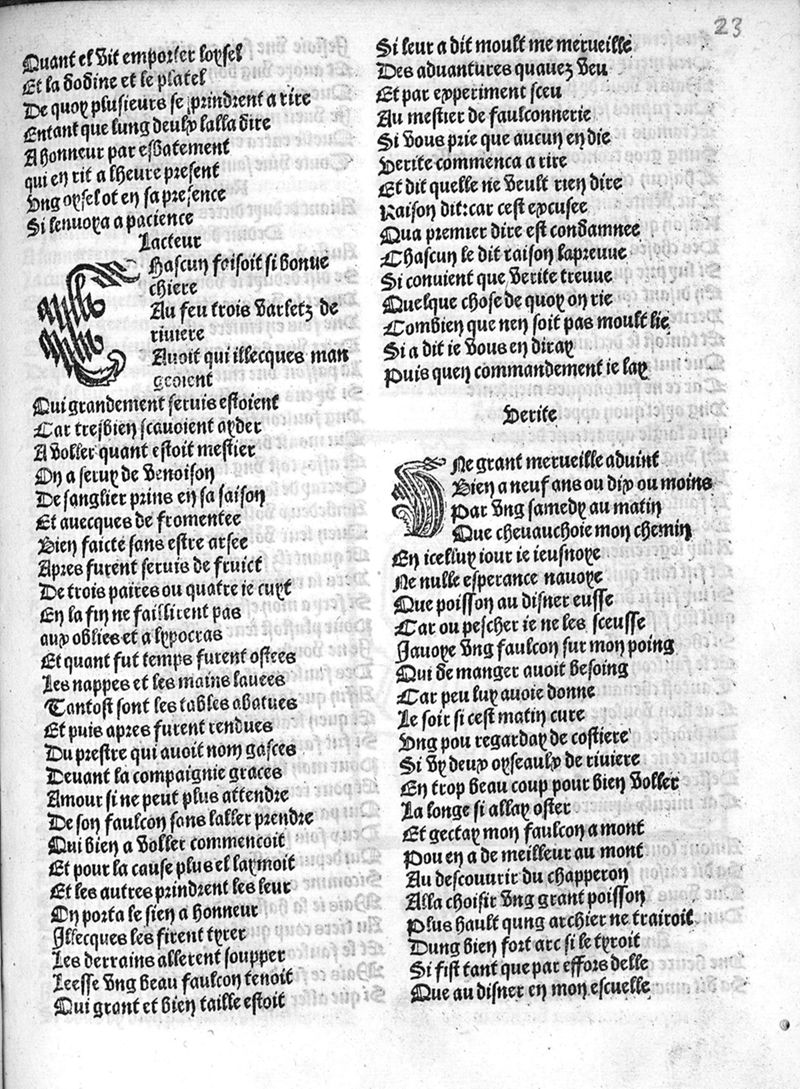 23
Quant el vit emporter loysel
Et la dodine et le platel
De quoy plusieurs se prindrent a rire
Entant que lung deulx lalla dire
A honneur par esbatement
qui en rit a lheure present
Ung oysel ot en sa presence
Si lenvoya a pacience
Lacteur
Chascun faisoit si bonne
chiere
Au feu trois varletz de
riviere
Avoit qui illecques man
geoient
Qui grandement servis estoient
Car tresbien scavoient ayder
A voller quant estoit mestier
On a servy de venoison
De sanglier prins en sa saison
Et avecques de fromentee
Bien faicte sans estre arsee
Apres furent servis de fruict
De trois paires ou quatre ie cuyt
En la fin ne faillirent pas
aux oblies et a lypocras
Et quant fut temps furent ostees
Les nappes et les mains lavees
Tantost sont les tables abatues
Et puis apres furent rendues
Du prestre qui avoit nom gasces
Devant la compaignie graces
Amour si ne peut plus attendre
De son faulcon sans laller prendre
Qui bien a voller commencoit
Et pour la cause plus el laymoit
Et les autres prindrent les leur
On porta le sien a honneur
Illecques les firent tyrer
Les derrains allerent soupper
Leesse ung beau faulcon tenoit
Qui grant et bien taille estoit
Si leur a dit moult me merveille
Des advantures quavez veu
Et par experiment sceu
Au mestier de faulconnerie
Si vous prie que aucun en die
Verite commenca a rire
Et dit quelle ne veult rien dire
Raison dit: car cest excusee
Qua premier dire est condamnee
Chascun le dit raison lapreuve
Si convient que Verite treuve
Quelque chose de quoy on rie
Combien que nen soit pas moult lie
Si a dit ie vous en diray
Puis quen commandement ie lay
Verite
Une grant merveille advint
Bien a neuf ans ou dix ou moins
Par ung samedy au matin
Que chevauchoie mon chemin
En icelluy iour ie ieusnoye
Ne nulle esperance navoye
Que poisson au disner eusse
Car ou pescher ie ne les sceusse
Javoye ung faulcon sur mon poing
Qui de manger avoit besoing
Car peu luy avoie donne
Le soir si cest matin cure
Ung pou regarday de costiere
Si vy deux oyseaulx de riviere
En trop beau coup pour bien voller
La longe si allay oster
Et gectay mon faulcon a mont
Pou en a de meilleur au mont
Au descouvrir du chapperon
Alla choisir ung grant poisson
Plus hault qung archier ne trairoit
Dung bien fort arc si le tyroit
Si fist tant que par effors delle
Que au disner en mon escuelle